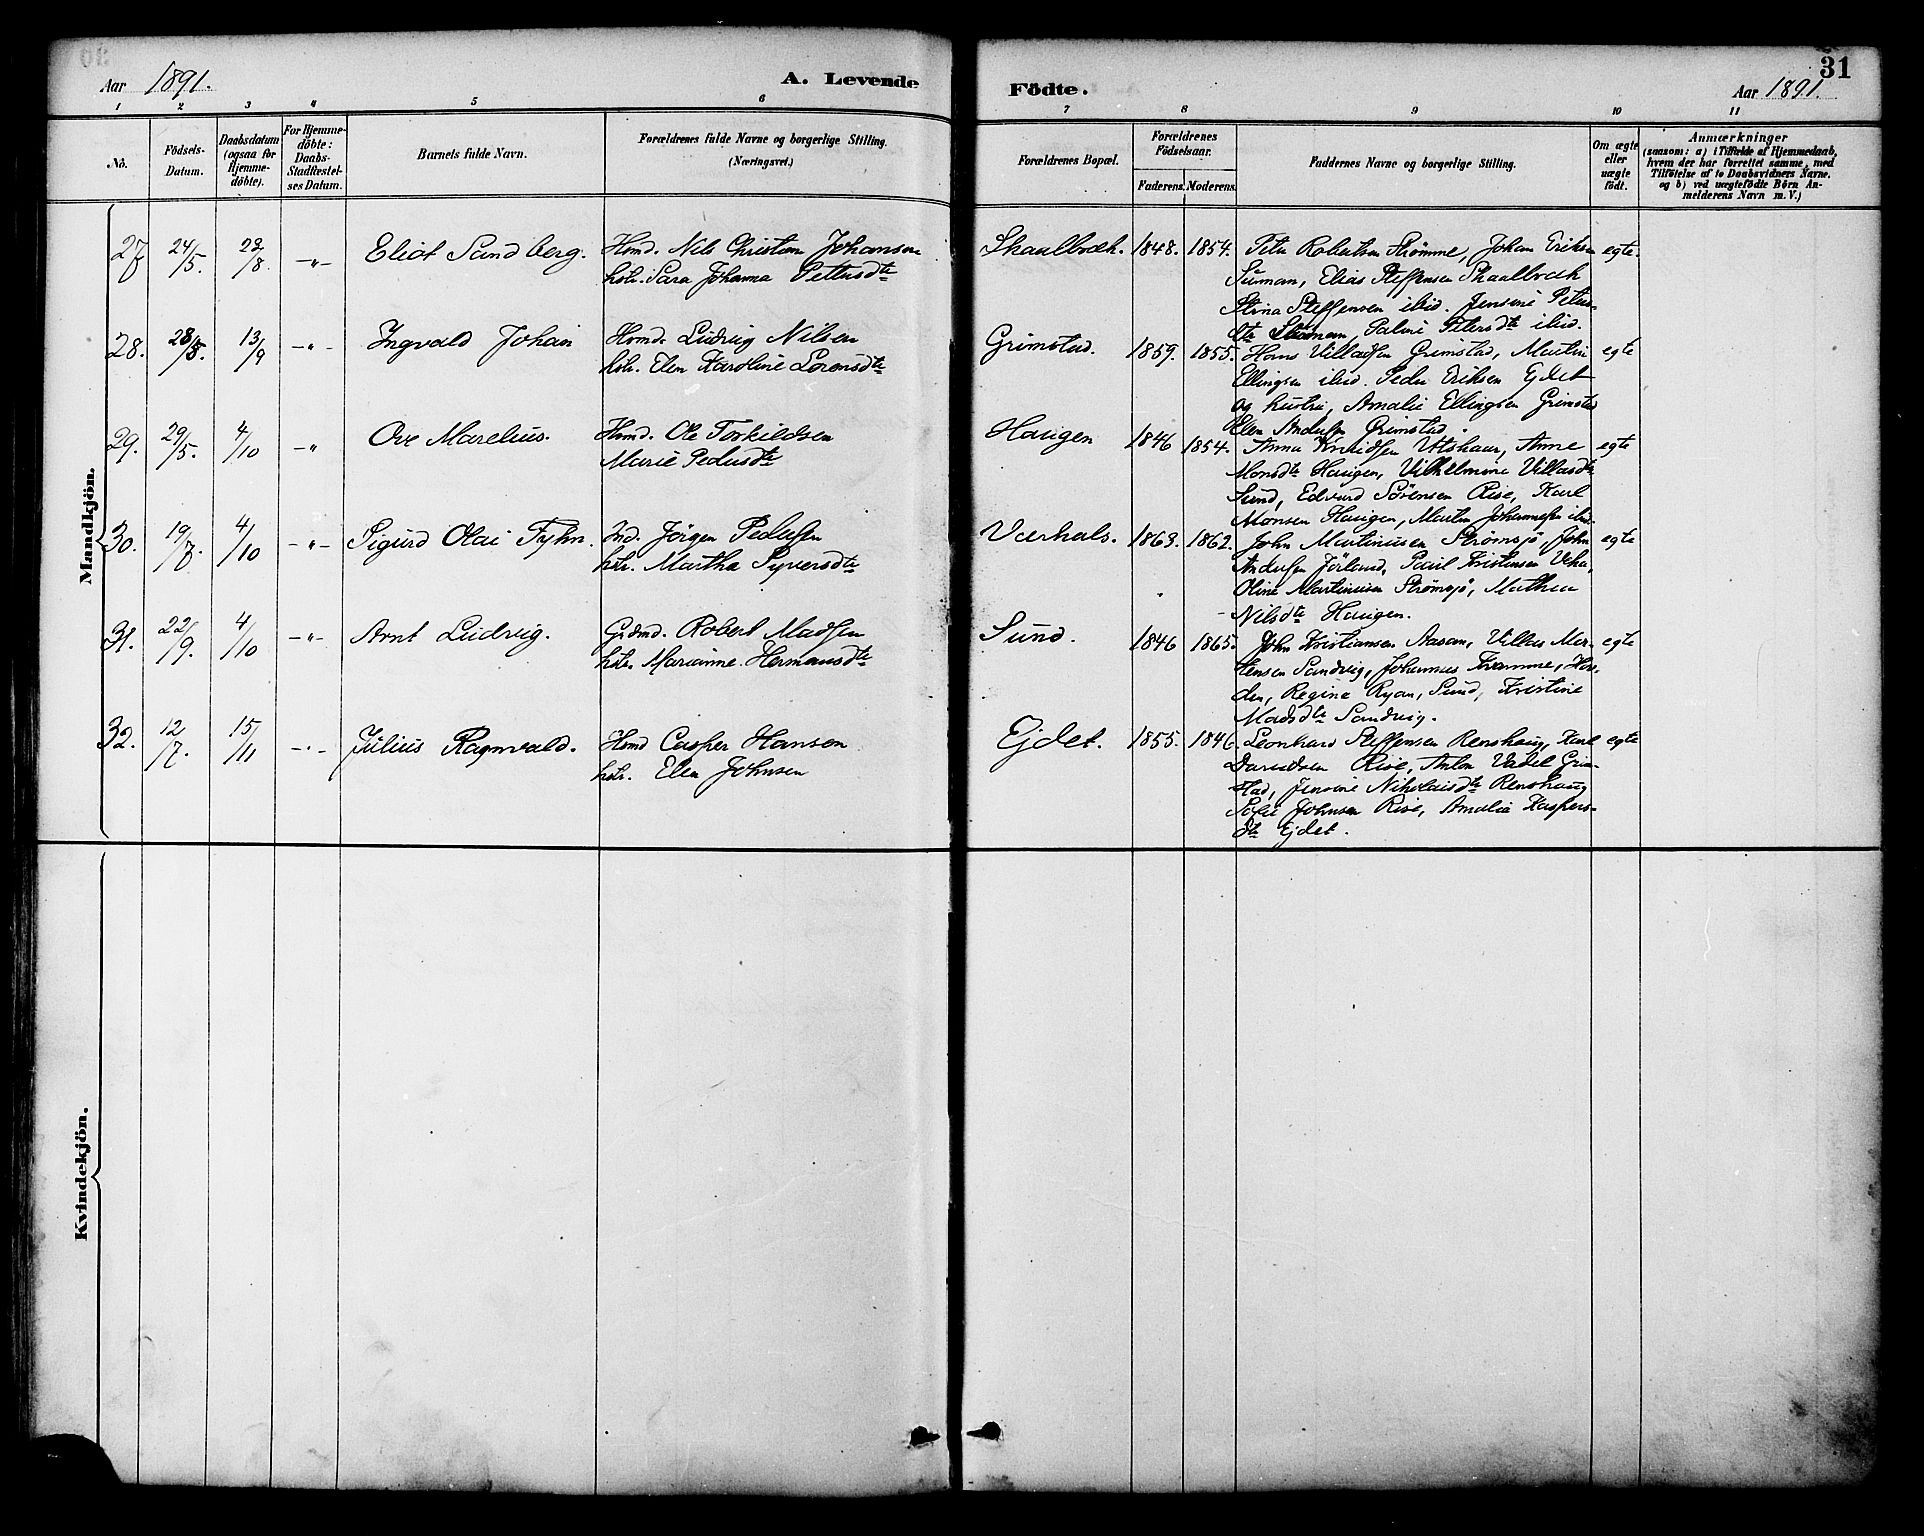 Aar 1891.
A. Levende
1 2 3 4 5 6
No.
Födsels-
Datum.
Daabsdatum
(ogsaa for
Hjemme-
döbte).
For Hjemme-
döbte:
Daabs-
Stadfæstel-
ses Datum.
Barnets fulde Navn.
Forældrenes fulde Navne og borgerlige Stilling.
(Næringsvei.)
Mandkjön.
27 24/5. 23/8 -"- Eliot Sandberg. Hmd. Nils Christian Johansen
hstr. Sara Johanna Pettersdtr
28. 28/5. 13/9 -"- Ingvald Johan Hsmd. Ludvig Nilsen
hstr. Elen Karoline Lorensdtr
29. 29/5. 4/10 -"- Ove Marelius. Hsmd. Ole Torkildsen
Marie Pedersdtr
30. 19/7. 4/10 -"- Sigurd Olai Fyhn. Ind. Jörgen Pedersen
hstr. Martha Syversdtr
31. 22/9. 4/10 -"- Arnt Ludvig. Grdmd. Robert Madsen
hstr. Marianne Hermansdtr
32. 12/7. 15/11 -"- Julius Ragnvald. Hsmd Casper Hansen
hstr. Elen Johnsen
Kvindekjön.
31
Födte.
Aar 1891.
7 8 9 10 11
Forældrenes Bopæl.
Forældrenes
Födselsaar.
Faderens. Moderens.
Faddernes Navne og borgerlige Stilling.
Om ægte
eller
uægte
født.
Anmærkninger
(saasom: a) i Tilfælde af Hjemmedaab,
hvem der har forrettet samme, med
Tilföielse af to Daabsvidners Navne.
og b) ved uægtefödte Börn An-
melderens Navn m. V.)
Skaalbræk. 1848. 1854. Peter Robertsen Strömme, Johan Eriksen egte.
Sunnan, Elias Steffensen Skaalbræk
Stina Steffensen ibid. Jensine Peters-
dtr Petersdtr ibid.
Grimstad. 1859. 1855. Hans Villadsen Grimstad, Martin egte
Ellingsen ibid. Peder Eriksen Ejdet
og hustru, Amalie Ellingsen Grimstad
Elen Andersen Grimstad.
Haugen 1846 1854. Anna Knudsen, Anne egte
Monsdtr Haugen, Vilhelmine Villasdtr
Sund, Edvard Sörensen Rise, Karl
Monsen Haugen, Martin Johannesen ibid.
Værhals. 1863. 1862. John Martinusen Strömsjö, John egte
Andersen Jörlund, Paul Kristensen
Oline Martinusen Strömsjö, Mathea
Nilsdtr Haugen.
Sund. 1846 1865. John Kristiansen Aasan, Villas Mor- egte
tensen Sandvig, Johannes
Regine Ryan, Sund, Kristine
Madsdtr Sandvig.
Ejdet. 1855. 1846. Leonhard Steffensen Renshaug, Karl egte
Rise, Anton Grim-
stad, Jensine Nikolaisdtr Renshaug
Sofie Johnsen Rise, Amalia Kaspers-
dtr Ejdet.